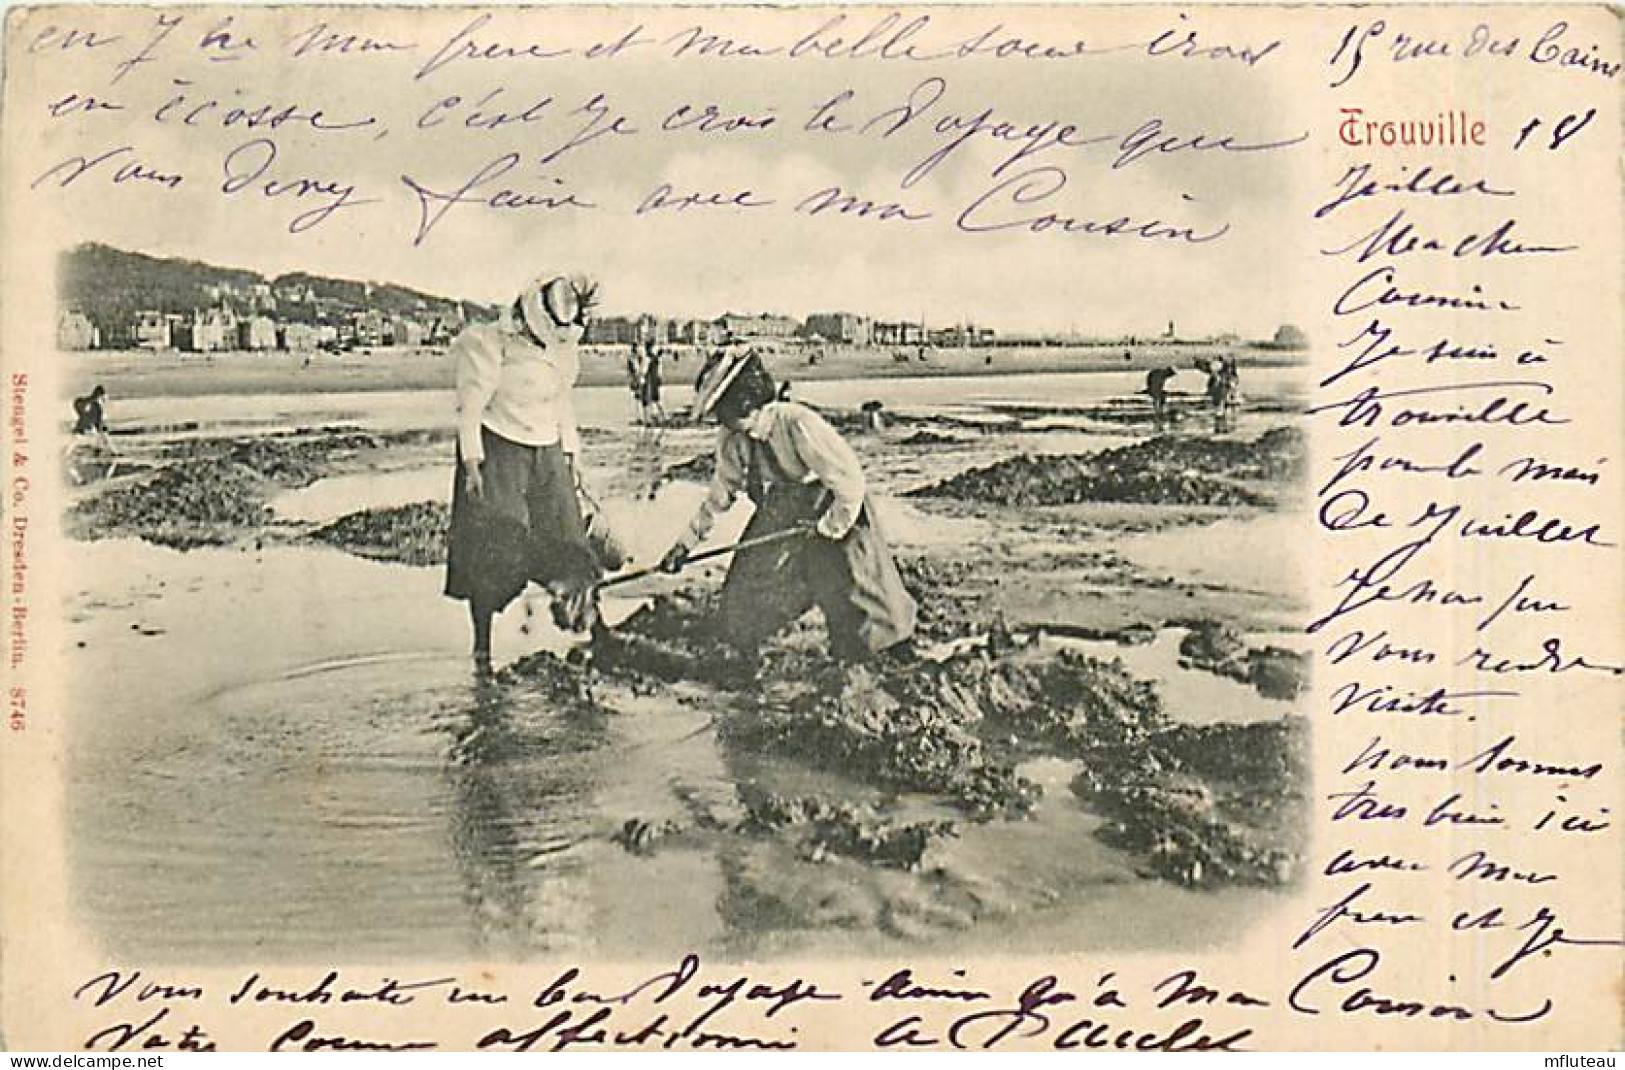 en 7bre mon frere et ma belle soeur irons
en écosse, c'est Je crois le Voyage que
Vous devez faire avec ma Cousin
15 rue des Bains
Trouville 18
Juillet
Mon cher
Cousin
Je suis à
trouville
pour le mois
De Juillet
Je nous
Vous rendre
visite.
nous sommes
tres bien ici
avec mon
frere et Je
Vous souhaite un bon Voyage ainsi qu'a ma Cousine
Votre Cousin affectionné A Paulet
Stengel & Co. Dresden-Berlin. 8746
mfluteau